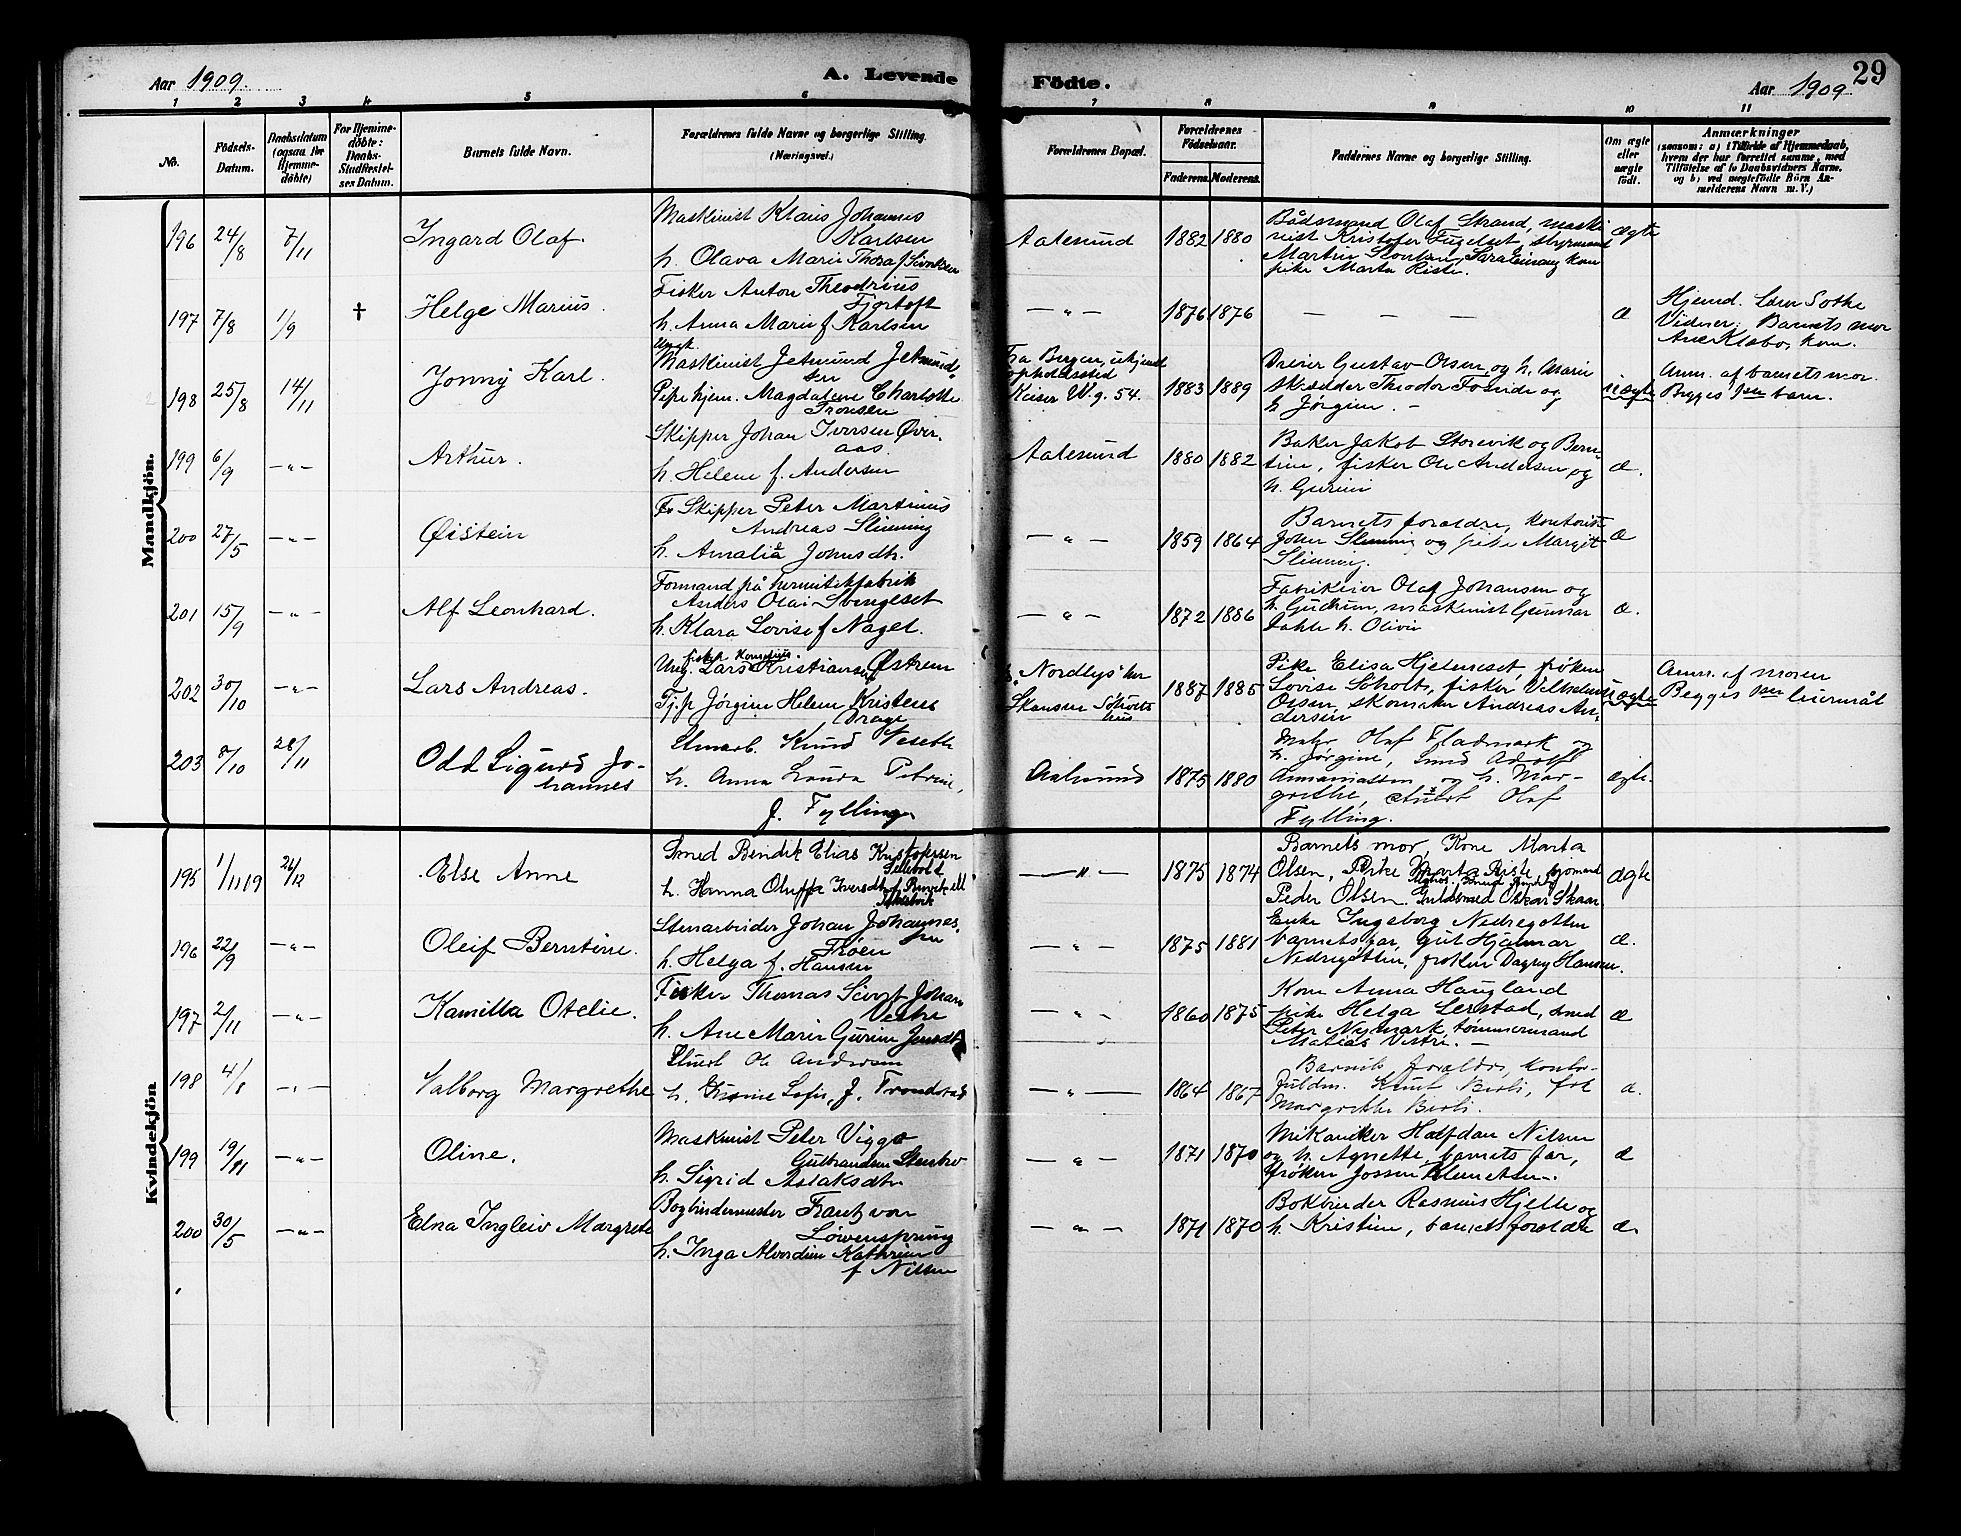 Aar 1909.
A. Levende
Födte.
Aar 1909.
29
1 2 3 4 5 6 7 8 9 10 11
No.
Födsels-Datum.
Daabsdatum (ogsaa for Hjemme-döbte)
For Hjemme-döbte: Daabs-Stadfæstel-ses Datum.
Barnets fulde Navn.
Forældrenes fulde Navne og borgerlige Stilling.
(Næringsvei.)
Forældrenes Bopæl.
Forældrenes Födselsaar.
Faderens. Moderens.
Faddernes Navne og borgerlige Stilling.
Om ægte eller uægte født.
Anmærkninger
(saasom: a) i Tilfælde af Hjemmedaab, hvem der har forrettet samme, med Tilföielse af to Daabsvidners Navne, og b) ved uægtefödte Börn Anmelderens Navn m. V.)
Mandkjön.
196 24/8 7/11 Ingard Olaf.
Maskinist Klaus Johannes
Karlsen
h. Olava Marie Thora f.
Aalesund 1882 1880
Bådsmand Olaf Strand, maski
nist Kristofer Fugelset, styrmand
Martin
pike Marta Riste.
ægte
197 7/8 1/9 † Helge Marius.
Fisker Anton Theodrius
Fjørtoft
h. Anna Marie f Karlsen
— " — 1876 1876 — — — æ
Hjemd.
Barnets mor
kone.
198 25/8 14/11 Jonny Karl.
Ungk.
Maskinist Jetmund Jetmund-
sen
Pike hjem. Magdalene Charlotte
Tronsen
Fra Bergen, ukjendt
opholdssted
Keiser W. g. 54. 1883 1889
Dreier Gustav Olsen og h.
Theodor og
h Jørgine. —
uægte
Anm. af barnets mor.
Begges 1ste barn.
199 6/9 — " — Arthur.
Skipper Johan Iversen Øver-
aas
h. Helene f. Andersen
Aalesund 1880 1882
Baker Jakob Storevik og Bern-
tine, fisker Ole Andersen og
h. Gurine
æ.
200 27/5 — " — Øistein
Skipper Peter Martinus
Andreas Slinning
h. Amalia Johnsdtr.
— " — 1859 1864
Barnets foraldre, kontorist
John Slinning og pike Margit
Slinning.
æ
201 15/9 — " — Alf Leonhard.
Formand på hermetikfabrik
Anders Olai
h. Klara Lovise f Nagel.
— " — 1872 1886
Fabrikeier Olaf Johansen og
h. Gudrun, maskinist Gunnar
h. Olivie
æ.
202 30/10 — " — Lars Andreas.
fisker
Ung. Lars Kristiansen Østrem
Tj.p Jørgine Helene Kristens
Drage
Nordlys
Skansen Søholts
hus
1887 1885
Pike Elisa Hjelmeset, frøken
Lovise Søholts, fisker Vilhelm
Olsen, skomaker Andreas An-
dersen
uægte
Anm. af moren
Begges 1ste leiermål
203 8/10 28/11 Odd Sigurd Jo-
hannes
Knud Veseth
h. Anna Laura Petrine,
f. Fylling.
Aalesund 1875 1880
Olaf Fladmark og
h. Jørgine, Smed Adolf
Annaniassen og h. Mar-
grethe, Olaf
Fylling.
ægte.
Kvindekjön
195 1/11 19 26/12 Else Anne
Smed Bendik Elias Kristofersen
h. Hanna Oluffa Iversdtr
— " — 1875 1874
Barnets mor, Kone Marta
Olsen, Pike Marta Riste,
Peder Olsen. Guldsmed Oskar Skaar
ægte
196 22/9 — " — Oleif Berntine.
Stenarbeider Johan Johannes-
sen
h. Helga f. Hansen
— " — 1875 1881
Enke Ingeborg Nedregotten
barnets far, gut Hjalmar
Nedregotten, frøken Dagny Hansen.
æ.
197 2/11 — " — Kamilla Otelie.
Fisker Thomas Sivert Johan
Vestre
h. Ane Marie Gurine Jensdtr
— " — 1860 1875
Kone Anna Haugland
pike Helga Lerstad, smed
Peter Nymark, tømmermand
Matias Vestre. —
æ
198 4/8 — " — Valborg Margrethe
Ole Andersen
h. Sofie, f.
— " — 1864 1867
Barnets foraldre,
Knut
Margrethe
æ.
199 19/11 — " — Oline.
Maskinist Peter Viggo
Gulbrandsen Stenbro
h. Sigrid Aslaksdtr
— " — 1871 1870
Mekaniker Halfdan Nilsen
og h. Agnette, barnets far,
frøken
æ
200 30/5 — " — Elna Ingleiv Margrete
Bogbindermester Frantz von
Løwensprung
h. Inga Alvordine Kathrine
f Nilsen
— " — 1871 1870
Bokbinder Rasmus Hjelle og
h. Kristine, barnets foraldre
æ.